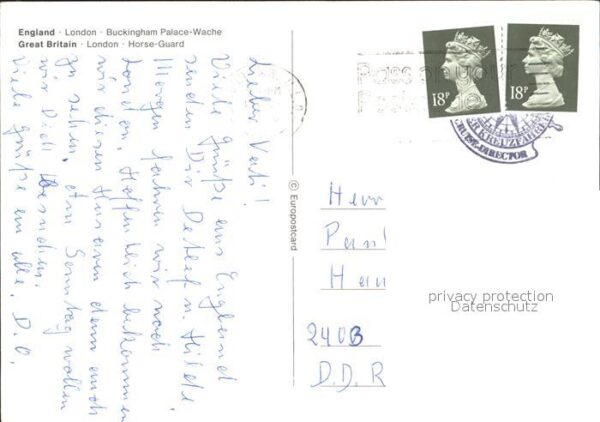 England · London · Buckingham Palace-Wache
Great Britain · London · Horse-Guard
Lieber Vati!
Viele Grüße aus England
senden Dir Detlef u. Hilde.
Morgen fahren wir nach
London. Hoffentlich bekommen
wir diesen Husaren dann auch
zu sehen. Am Sonntag wollen
wir Dich besuchen.
Viele Grüße an alle. D. O.
© Europostcard
18P
18P
Pass on your
KREUZFAHRT
CRUISE-DIRECTOR
Herr
Paul
Han
privacy protection
Datenschutz
2403
D.D.R